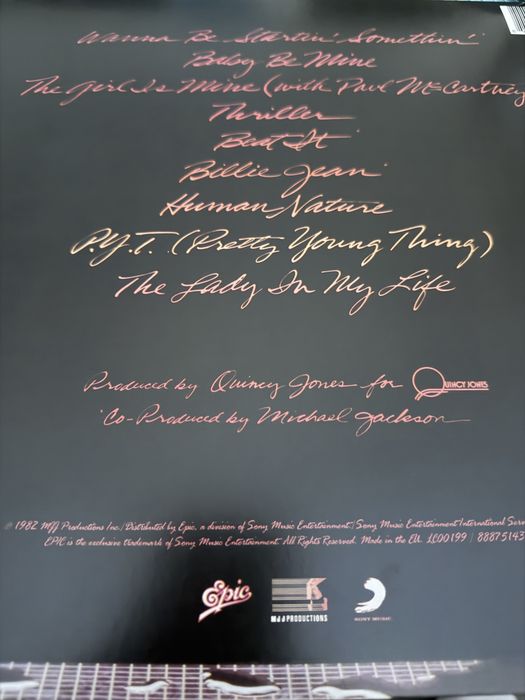 Wanna Be Startin' Somethin'
Baby Be Mine
The Girl Is Mine (with Paul McCartney
Thriller
Beat It
Billie Jean
Human Nature
P.Y.T. (Pretty Young Thing)
The Lady In My Life
Produced by Quincy Jones for QUINCY JONES
Co-Produced by Michael Jackson
℗ 1982 MJJ Productions Inc./Distributed by Epic, a division of Sony Music Entertainment/Sony Music Entertainment International Serv
EPIC is the exclusive trademark of Sony Music Entertainment. All Rights Reserved. Made in the EU. LC00199 / 88875143
Epic
MJJ PRODUCTIONS
SONY MUSIC